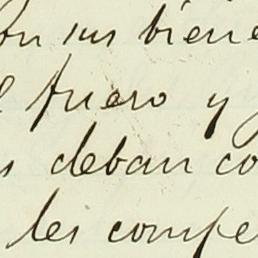 on sus biene
fuero y
s deban co
les compe